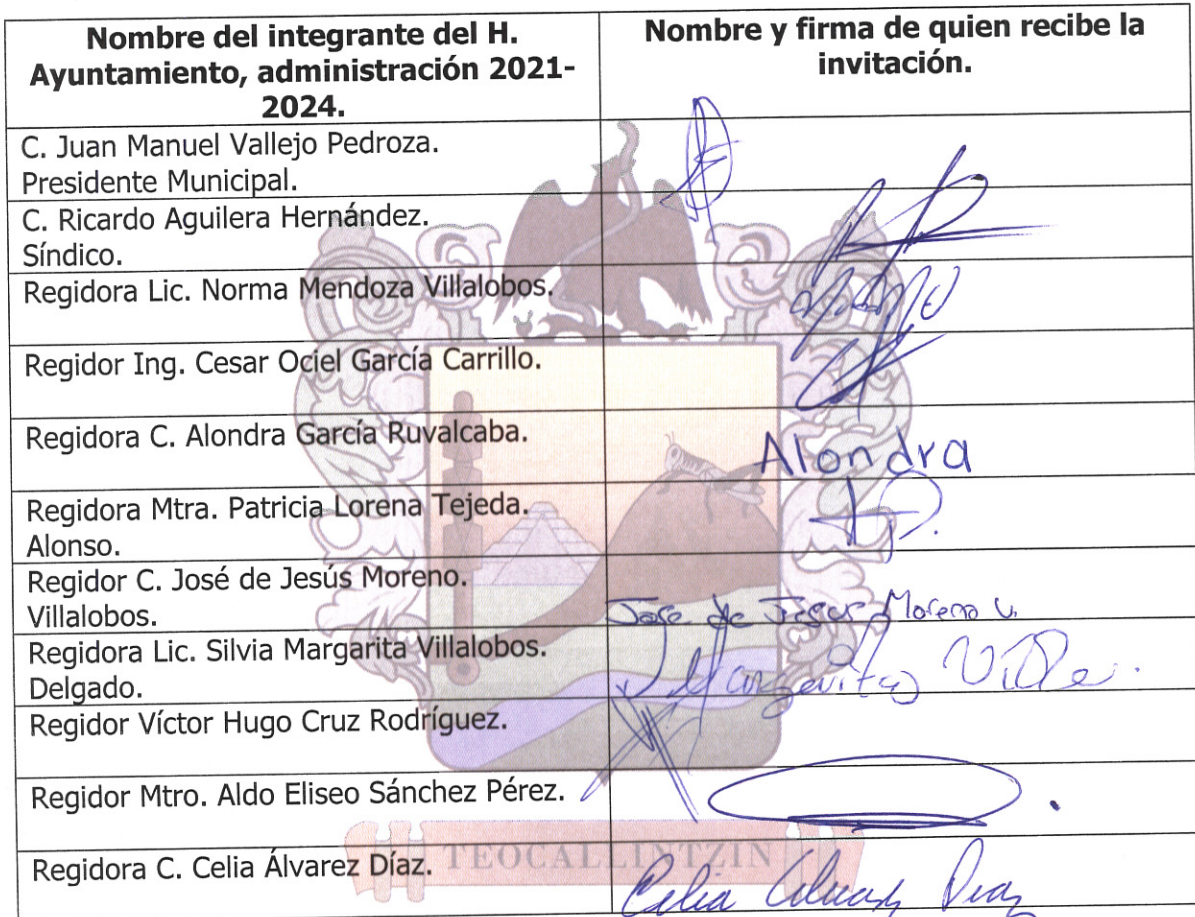 Nombre del integrante del H.
Ayuntamiento, administración 2021-
2024.
Nombre y firma de quien recibe la
invitación.
C. Juan Manuel Vallejo Pedroza.
Presidente Municipal.
C. Ricardo Aguilera Hernández.
Síndico.
Regidora Lic. Norma Mendoza Villalobos.
Regidor Ing. Cesar Ociel García Carrillo.
Regidora C. Alondra García Ruvalcaba.
Alondra
Regidora Mtra. Patricia Lorena Tejeda.
Alonso.
Regidor C. José de Jesús Moreno.
Villalobos.
Jose de Jesus Moreno V.
Regidora Lic. Silvia Margarita Villalobos.
Delgado.
Margarita
Regidor Víctor Hugo Cruz Rodríguez.
Regidor Mtro. Aldo Eliseo Sánchez Pérez.
Regidora C. Celia Álvarez Díaz.
Celia Alvarez Diaz
TEOCALLINTZIN